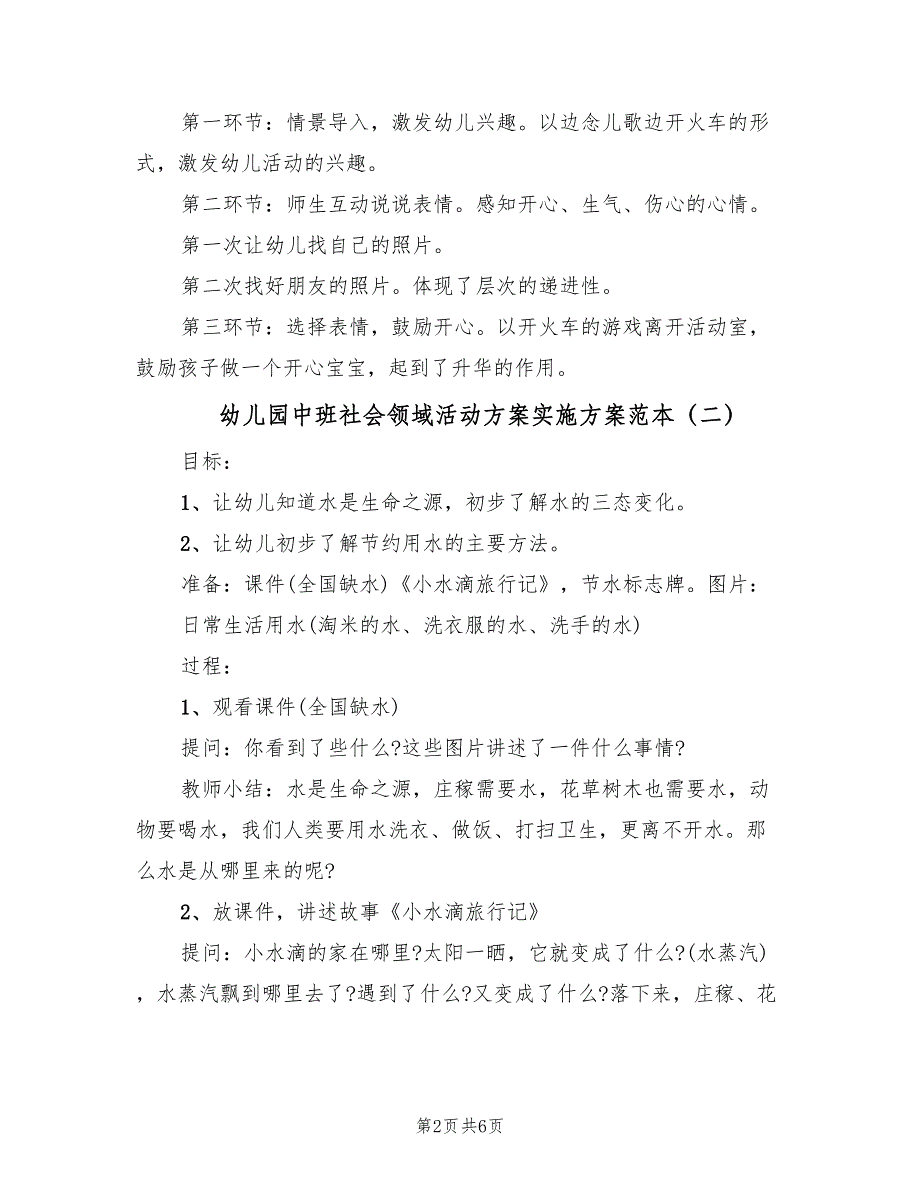 第一环节：情景导入，激发幼儿兴趣。以边念儿歌边开火车的形
式，激发幼儿活动的兴趣。
第二环节：师生互动说说表情。感知开心、生气、伤心的心情。
第一次让幼儿找自己的照片。
第二次找好朋友的照片。体现了层次的递进性。
第三环节：选择表情，鼓励开心。以开火车的游戏离开活动室，
鼓励孩子做一个开心宝宝，起到了升华的作用。
幼儿园中班社会领域活动方案实施方案范本（二）
目标：
1、让幼儿知道水是生命之源，初步了解水的三态变化。
2、让幼儿初步了解节约用水的主要方法。
准备：课件(全国缺水)《小水滴旅行记》，节水标志牌。图片：
日常生活用水(淘米的水、洗衣服的水、洗手的水)
过程：
1、观看课件(全国缺水)
提问：你看到了些什么?这些图片讲述了一件什么事情?
教师小结：水是生命之源，庄稼需要水，花草树木也需要水，动
物要喝水，我们人类要用水洗衣、做饭、打扫卫生，更离不开水。那
么水是从哪里来的呢?
2、放课件，讲述故事《小水滴旅行记》
提问：小水滴的家在哪里?太阳一晒，它就变成了什么?(水蒸汽)
，水蒸汽飘到哪里去了?遇到了什么?又变成了什么?落下来，庄稼、花
第2页共6页